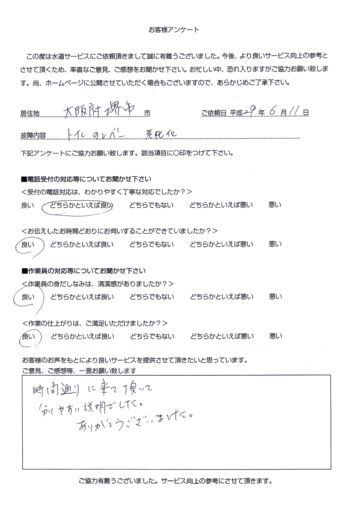 お客様アンケート
この度は水道サービスにご依頼頂きまして誠に有難うございました。今後、より良いサービス向上の参考と
させて頂くため、率直なご意見、ご感想をお聞かせ下さい。お忙しい中、恐れ入りますがご協力お願い致しま
す。尚、ホームページに公開させていただく場合もございますので、あらかじめご了承下さい。
居住地 大阪府堺市 市 ご依頼日 平成29年 6月 11日
故障内容 トイレのレバー 老朽化
下記アンケートにご協力お願い致します。該当項目に〇印をつけて下さい。
■電話受付の対応等についてお聞かせ下さい
<受付の電話対応は、わかりやすく丁寧な対応でしたか?>
良い どちらかといえば良い どちらでもない どちらかといえば悪い 悪い
<お伝えしたお時間どおりにお伺いすることができていましたか?>
良い どちらかといえば良い どちらでもない どちらかといえば悪い 悪い
■作業員の対応等についてお聞かせ下さい
<作業員の身だしなみは、清潔感がありましたか?>
良い どちらかといえば良い どちらでもない どちらかといえば悪い 悪い
<作業の仕上がりは、ご満足いただけましたか?>
良い どちらかといえば良い どちらでもない どちらかといえば悪い 悪い
お客様のお声をもとにより良いサービスを提供させて頂きたいと思っています。
ご意見、ご感想等、一言お願い致します
時間通りに来て頂いて
分りやすい説明でした。
ありがとうございました。
ご協力有難うございました。サービス向上の参考にさせて頂きます。